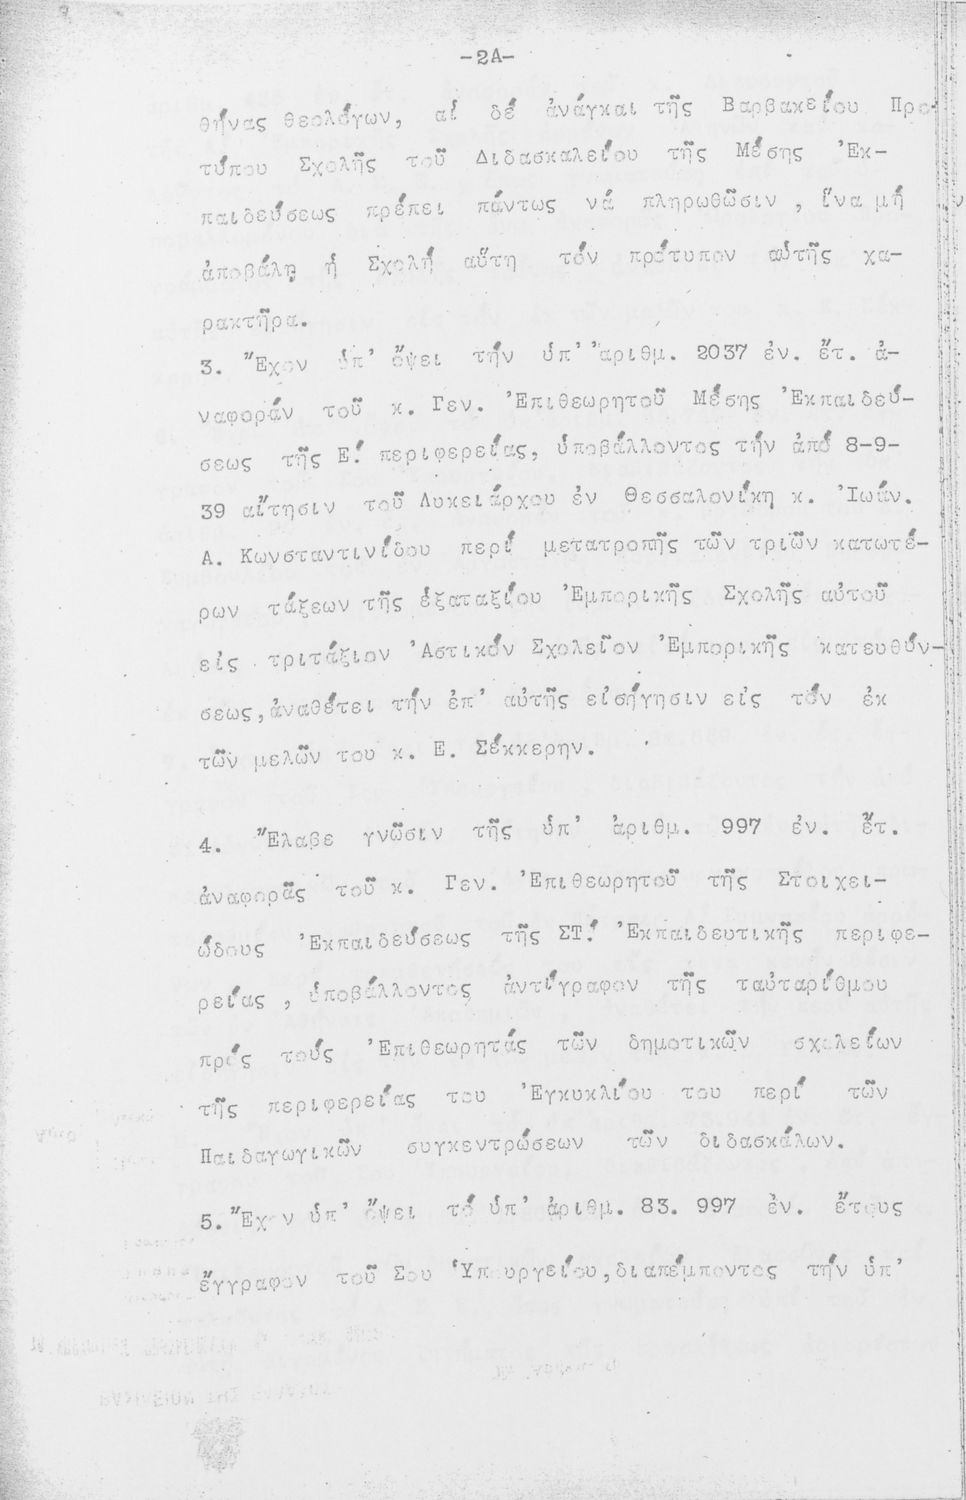 -2Α-
θήνας θεολόγων, αἱ δέ ἀνάγκαι τῆς Βαρβακείου Προ-
τύπου Σχολῆς τοῦ Διδασκαλείου τῆς Μέσης Ἐκ-
παιδεύσεως πρέπει πάντως νά πληρωθῶσιν, ἵνα μή
ἀποβάλῃ ἡ Σχολή αὕτη τόν πρότυπον αὐτῆς χα-
ρακτῆρα.
3. Ἔχον ὑπ' ὄψει τήν ὑπ' ἀριθμ. 2037 ἐν. ἔτ. ἀ-
ναφοράν τοῦ κ. Γεν. Ἐπιθεωρητοῦ Μέσης Ἐκπαιδεύ-
σεως τῆς Ε! περιφερείας, ὑποβάλλοντος τήν ἀπό 8-9-
39 αἴτησιν τοῦ Λυκειάρχου ἐν Θεσσαλονίκη κ. Ἰωάν.
Α. Κωνσταντινίδου περί μετατροπῆς τῶν τριῶν κατωτέ-
ρων τάξεων τῆς ἑξαταξίου Ἐμπορικῆς Σχολῆς αὐτοῦ
εἰς τριτάξιον Ἀστικόν Σχολεῖον Ἐμπορικῆς κατευθύν-
σεως, ἀναθέτει τήν ἐπ' αὐτῆς εἰσήγησιν εἰς τόν ἐκ
τῶν μελῶν του κ. Ε. Σέκκερην.
4. Ἔλαβε γνῶσιν τῆς ὑπ' ἀριθμ. 997 ἐν. ἔτ.
ἀναφορᾶς τοῦ κ. Γεν. Ἐπιθεωρητοῦ τῆς Στοιχει-
ώδους Ἐκπαιδεύσεως τῆς ΣΤ! Ἐκπαιδευτικῆς περιφε-
ρείας, ὑποβάλλοντος ἀντίγραφον τῆς ταὐταρίθμου
πρός τούς Ἐπιθεωρητάς τῶν δημοτικῶν σχολείων
τῆς περιφερείας του Ἐγκυκλίου του περί τῶν
Παιδαγωγικῶν συγκεντρώσεων τῶν διδασκάλων.
5. Ἔχον ὑπ' ὄψει τό ὑπ' ἀριθμ. 83. 997 ἐν. ἔτους
ἔγγραφον τοῦ Σου Ὑπουργείου, διαπέμποντος τήν ὑπ'